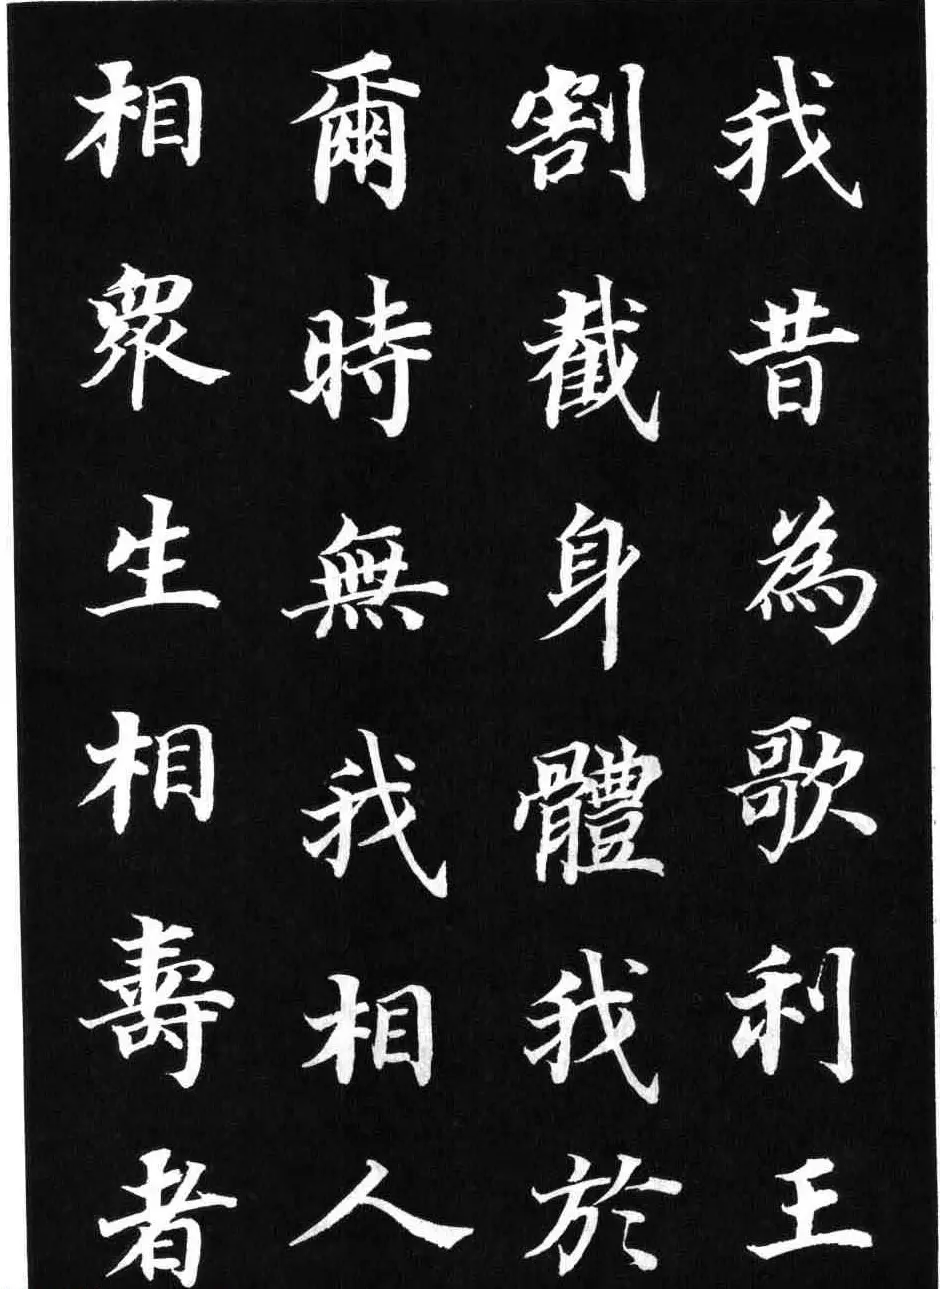 我昔為歌利王
割截身體我於
爾時無我相人
相衆生相壽者